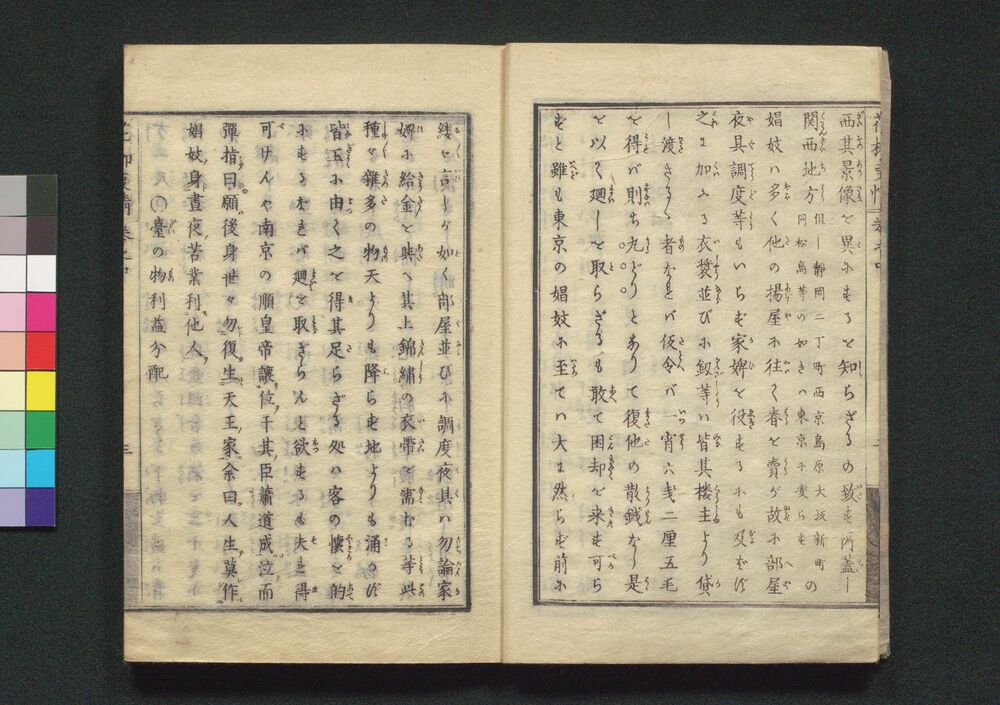 西其景像を異にするを知らざるの致す所蓋し
関西地方
但し静岡二丁町西京島原大坂新町の
同松島等の如きハ東京に変らず
娼妓ハ多く他の揚屋に往て春を賣るが故に部屋
夜具調度等もいらず家婢を役するにも及ばず
之に加ふる衣裳並びに釵等ハ皆其楼主より貸
し渡さるゝ者なれバ仮令バ一宵六銭二厘五毛
を得バ則ち丸どりとありて復他の散銭なし是
を以て廻しを取らざるも敢て困却を来す可ら
ずと雖も東京の娼妓に至てハ大に然らず前に
縷々言しが如く部屋並びに調度夜具ハ勿論家
婢に給金を與へ其上錦繍の衣帯を需むる等此
種々雑多の物天よりも降らず地よりも涌かず
皆玉に由て之を得其足らざる処ハ客の懐を的
にするなれバ廻を取ざらんと欲するも夫れ得
可けんや南京の順皇帝讓位于其臣蕭道成泣而
彈指曰願後身世々勿復生天王家余曰人生莫作
娼妓身晝夜苦業利他人
〇臺の物利益分配
三